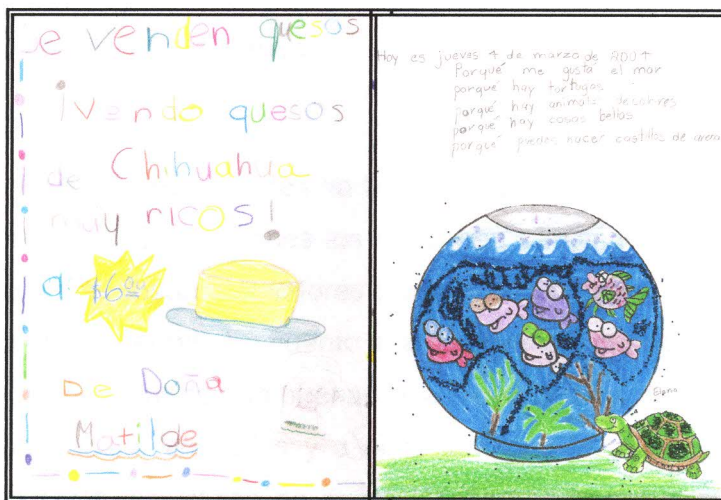 Se venden quesos
¡Vendo quesos
de Chihuahua
muy ricos!
a $6.00
De Doña
Matilde
Hoy es jueves 4 de marzo de 2004
Porqué me gusta el mar
porqué hay tortugas
porqué hay animals de colores
porqué hay cosas bellas
porqué puedes hacer castillos de arena